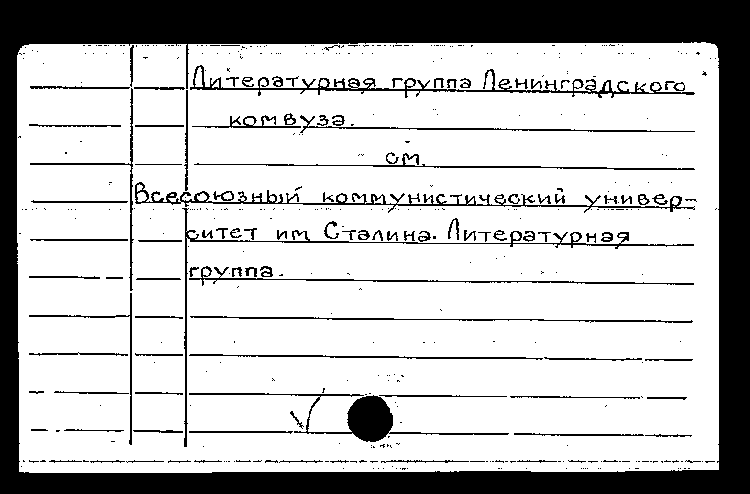 Литературная группа Ленинградского
комвуза.
см.
Всесоюзный коммунистический универ-
ситет им Сталина. Литературная
группа.